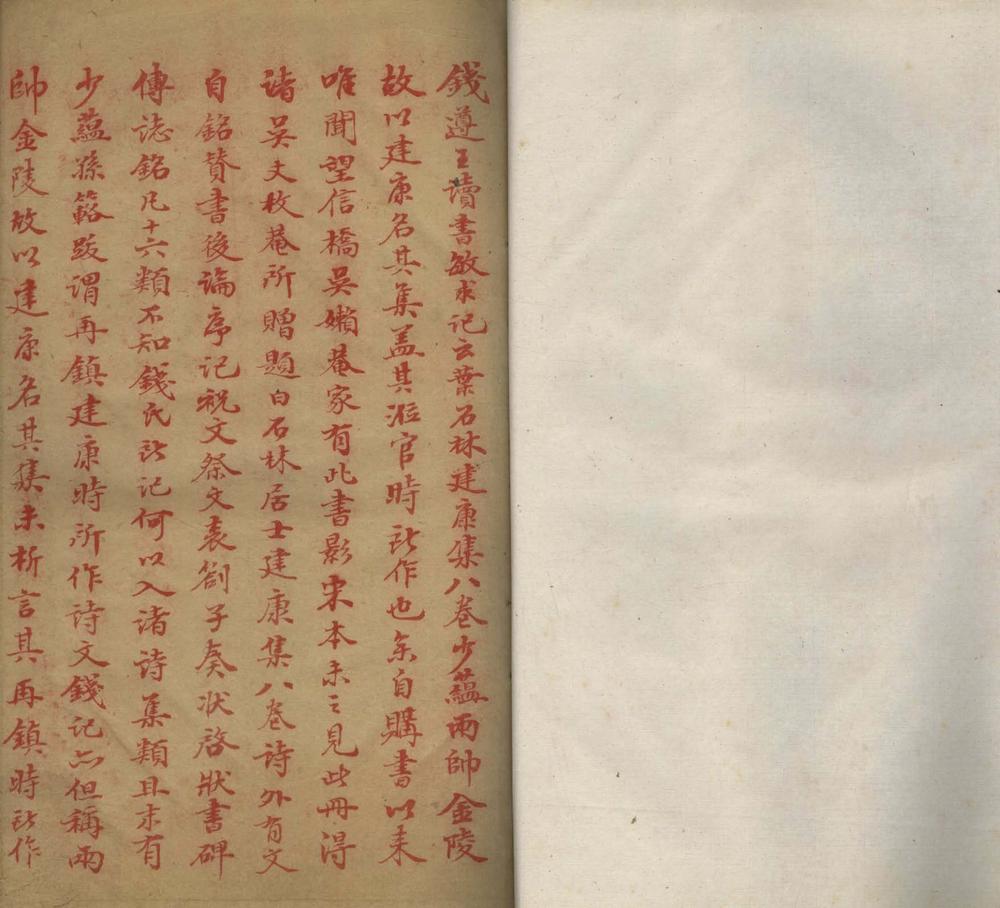 錢遵王讀書敏求記云葉石林建康集八卷少蘊兩帥金陵
故以建康名其集蓋其涖官時所作也余自購書以来
唯聞望信橋吳嬾菴家有此書影宋本未之見此冊得
諸吳丈枚菴所贈題曰石林居士建康集八卷詩外有文
自銘贊書後論序記祝文祭文表劄子奏狀啓狀書碑
傳誌銘凡十六類不知錢氏所記何以入諸詩集類且末有
少蘊孫簵跋謂再鎮建康時所作詩文錢記亦但稱兩
帥金陵故以建康名其集未析言其再鎮時所作